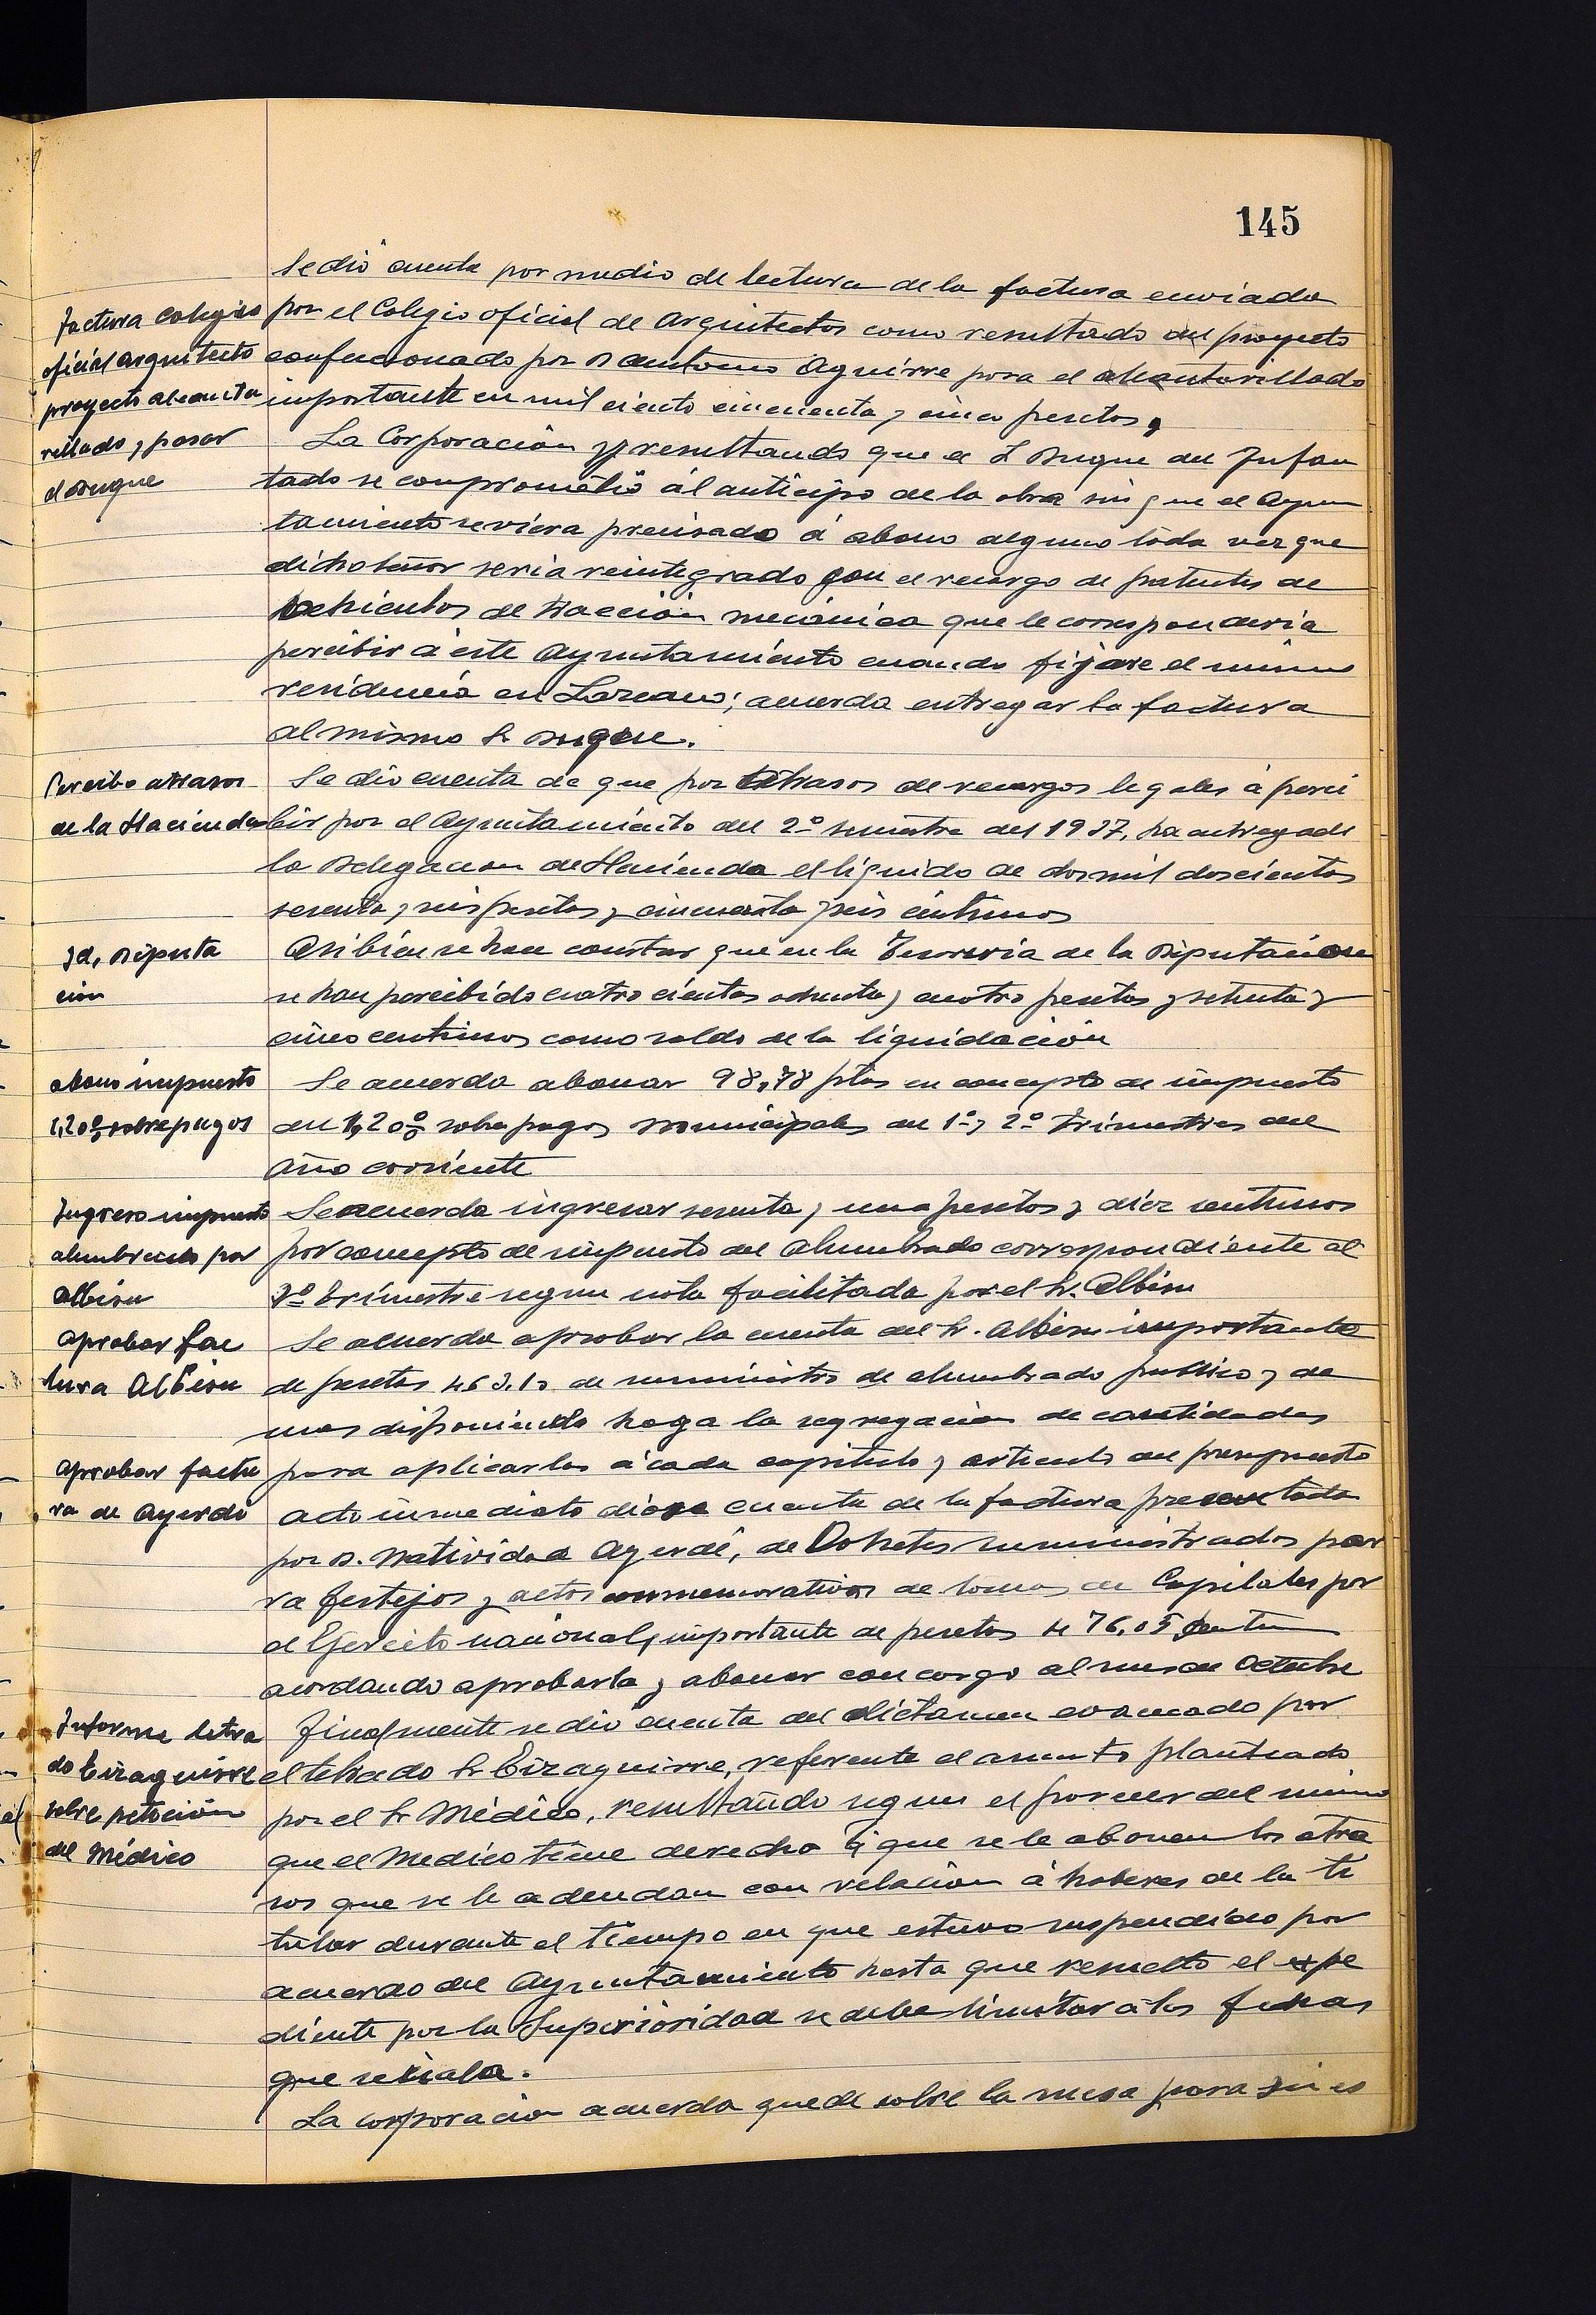 145
Se dió cuenta por medio de lectura de la factura enviada
factura colegio
oficial arquitecto
proyecto alcanta
rillado y pasar
al Duque
por el Colegio oficial de Arquitectos como resultado del proyecto
confeccionado por D Antonio Aguirre para el alcantarillado
importante en mil ciento cincuenta y cinco pesetas,
La Corporación y resultando que el S Duque del Infan
tado se comprometió al anticipo de la obra sin que el Ayun
tamiento se viera precisado á abono alguno toda vez que
dicho Señor seria reintegrado con el recargo de patentes de
vehiculos de tracción mecánica que le corresponderia
percibir a este Ayuntamiento cuando fijare el mismo
residencia en Lazcano; acuerda entregar la factura
al mismo Sr Duque.
Percibo atrasos
de la Hacienda
Se dio cuenta de que por atrasos de recargos legales á perci
bir por el Ayuntamiento del 2º semestre del 1937, ha entregado
la Delegacion de Hacienda el liquido de dos mil doscientas
sesenta y seis pesetas y cincuenta y seis centimos
Id, Diputa
cion
Asi bien se hace constar que en la Tesoreria de la Diputación
se han percibido cuatro cientas ochenta y cuatro pesetas y setenta y
cinco centimos como saldo de la liquidación
abono impuesto
1,20% sobre pagos
Se acuerda abonar 98,78 ptas en concepto de impuesto
del 1,20% sobre pagos municipales del 1º y 2º trimestres del
año corriente
Ingreso impuesto
alumbrado por
Albisu
Se acuerda ingresar sesenta y una pesetas y diez centimos
por concepto de impuesto del alumbrado correspondiente al
3º trimestre segun nota facilitada por el Sr. Albisu
aprobar fac
tura Albisu
Se acuerda aprobar la cuenta del Sr. Albisu importante
de pesetas de suministro de alumbrado publico y de
mas disponiendo haga la segregacion de cantidades
para aplicarlas á cada capitulo y articulo del presupuesto
aprobar factu
ra de Ayerdi
acto inmediato diose cuenta de la factura presentada
por D. Natividad Ayerdi, de Cohetes suministrados par
ra festejos y actos conmemorativos de toma de Capitales por
el Ejercito nacional, importante de pesetas 476,05
acordando aprobarla y abonar con cargo al mes de Octubre
Informe letra
do Eizaguirre
sobre petición
del Médico
Finalmente se dio cuenta del dictamen evacuado por
el letrado Sr Eizaguirre, referente al asunto planteado
por el Sr Médico, resultando segun el parecer del mismo
que el Medico tiene derecho á que se le abonen los atra
sos que se le adeudan con relación á haberes de la ti
tular durante el tiempo en que estuvo suspendido por
acuerdo del Ayuntamiento hasta que resuelto el expe
diente por la Superioridad se debe limitar á las fechas
que señala.
La corporacion acuerda quede sobre la mesa para